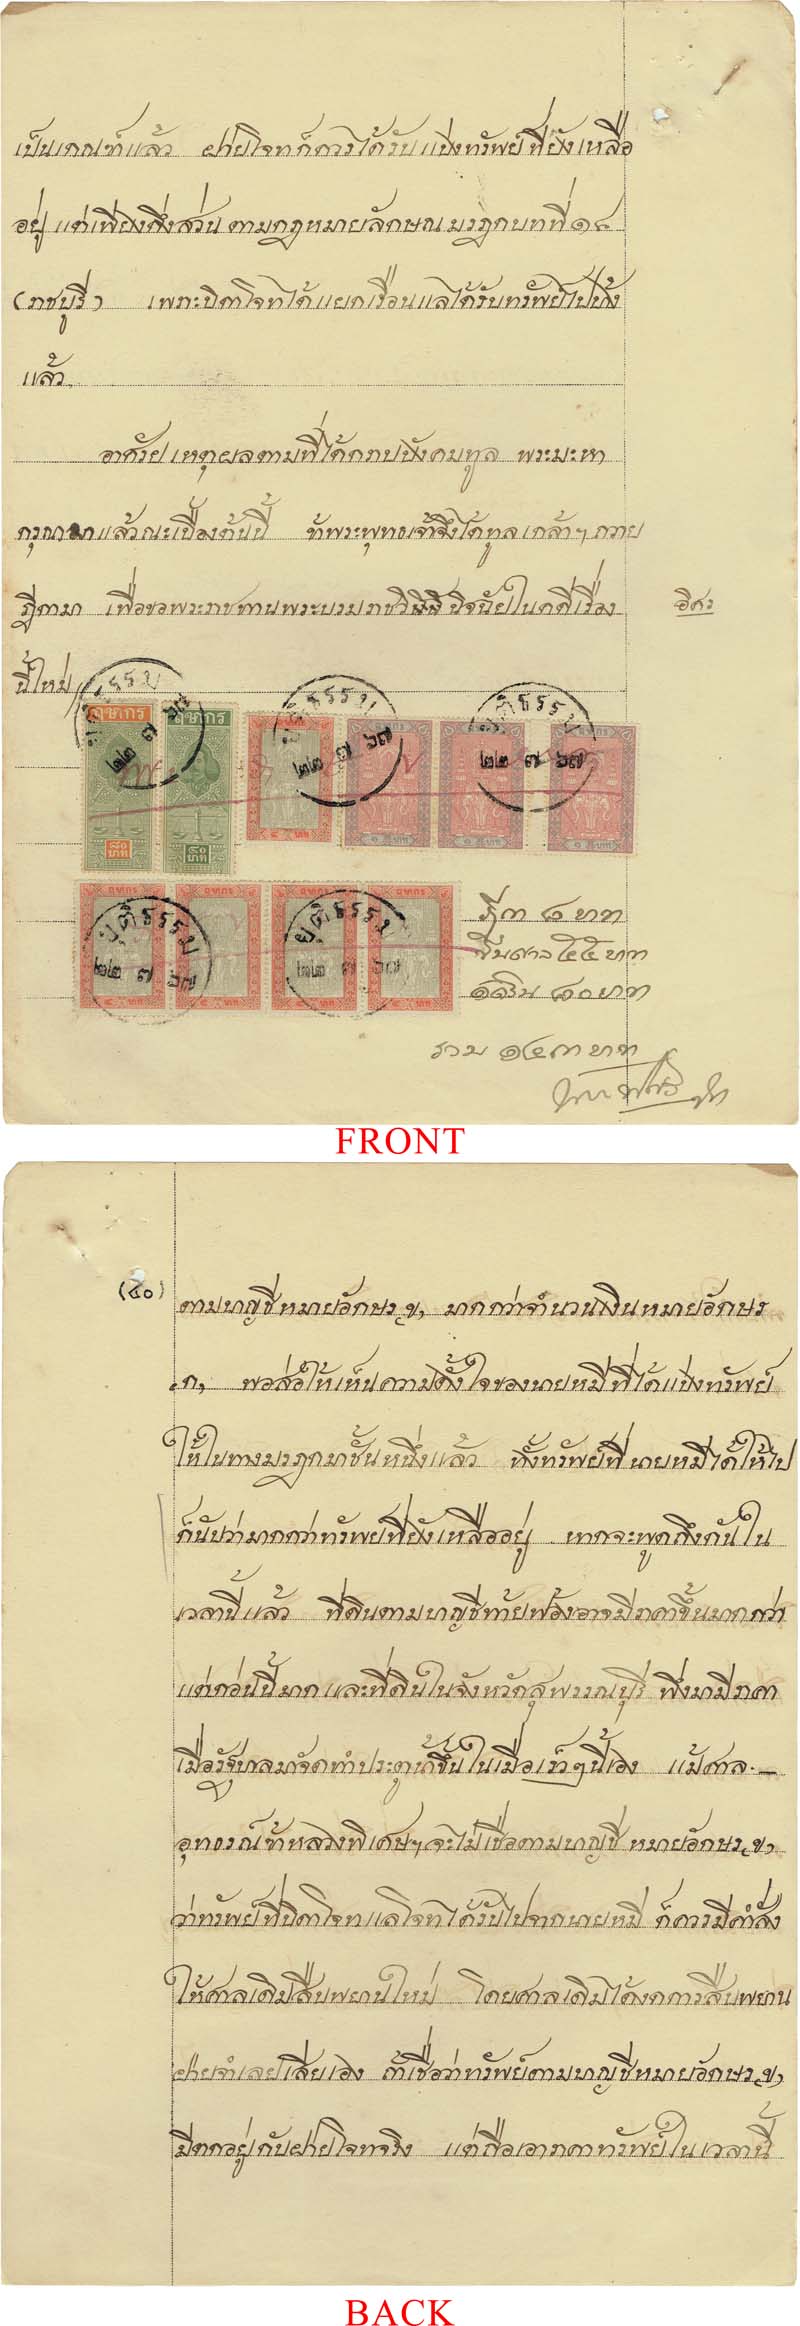 เป็นเกณฑ์แล้ว ฝ่ายโจทก็ควรได้รับแบ่งทรัพย์ที่ยังเหลือ
อยู่ แต่เพียงกึ่งส่วน ตามกฎหมายลักษณมรฎกบทที่ ๑๔
(ราชบุรี) เพราะบิดาโจทได้แยกเรือนแลได้รับทรัพย์ไปบ้าง
แล้ว
อาศรัยเหตุผลตามที่ได้กราบบังคมทูล พระมะหา
กรุณามาแล้วณะเบื้องต้นนี้ ข้าพระพุทธเจ้าจึงได้ทูลเกล้าฯ ถวาย
ฎีกามา เพื่อขอพระราชทานพระบรมราชวินิจฉัยในคดีเรื่อง
นี้ใหม่
อากร อากร อากร อากร อากร อากร
ยุติธรรม ๒๒ ๗ ๖๗
ยุติธรรม ๒๒ ๗ ๖๗
ยุติธรรม ๒๒ ๗ ๖๗
๔๐ บาท ๔๐ บาท ๔ บาท ๑ บาท ๑ บาท ๑ บาท
อากร อากร อากร อากร
ยุติธรรม ๒๒ ๗ ๖๗
ยุติธรรม ๒๒ ๗ ๖๗
๔ บาท ๔ บาท ๔ บาท ๔ บาท
ฎีกา ๘ บาท
ขึ้นศาล ๕๕ บาท
๘๐ บาท
รวม ๑๔๓ บาท
FRONT
(๕๐) ตามบาญชีหมายอักษร ข, มากกว่าจำนวนเงินหมายอักษร
ก, พอส่อให้เห็นความตั้งใจของนายหมีที่ได้แบ่งทรัพย์
ให้ในทางมรฎกมาชั้นหนึ่งแล้ว ทั้งทรัพย์ที่นายหมีได้ให้ไป
ก็นับว่ามากกว่าทรัพย์ที่ยังเหลืออยู่ หากจะพูดถึงกันใน
เวลานี้แล้ว ที่ดินตามบาญชีท้ายฟ้องอาจมีราคาขึ้นมากกว่า
แต่ก่อนนี้มาก และที่ดินในจังหวัดสุพรรณบุรี พึ่งมามีราคา
เมื่อรัฐบาลมาจัดทำประตูน้ำขึ้นในเมื่อเร็วๆนี้เอง แม้ศาล
อุทธรณ์ข้าหลวงพิเศษฯ จะไม่เชื่อตามบาญชีหมายอักษร ข,
ว่าทรัพย์ที่บิดาโจทแลโจทได้รับไปจากนายหมี ก็ควรมีคำสั่ง
ให้ศาลเดิมสืบพยานใหม่ โดยศาลเดิมได้งดการสืบพยาน
ฝ่ายจำเลยเสียเอง ถ้าเชื่อว่าทรัพย์ตามบาญชีหมายอักษร ข,
มีตกอยู่กับฝ่ายโจทจริง แต่ถือเอาราคาทรัพย์ในเวลานี้
BACK